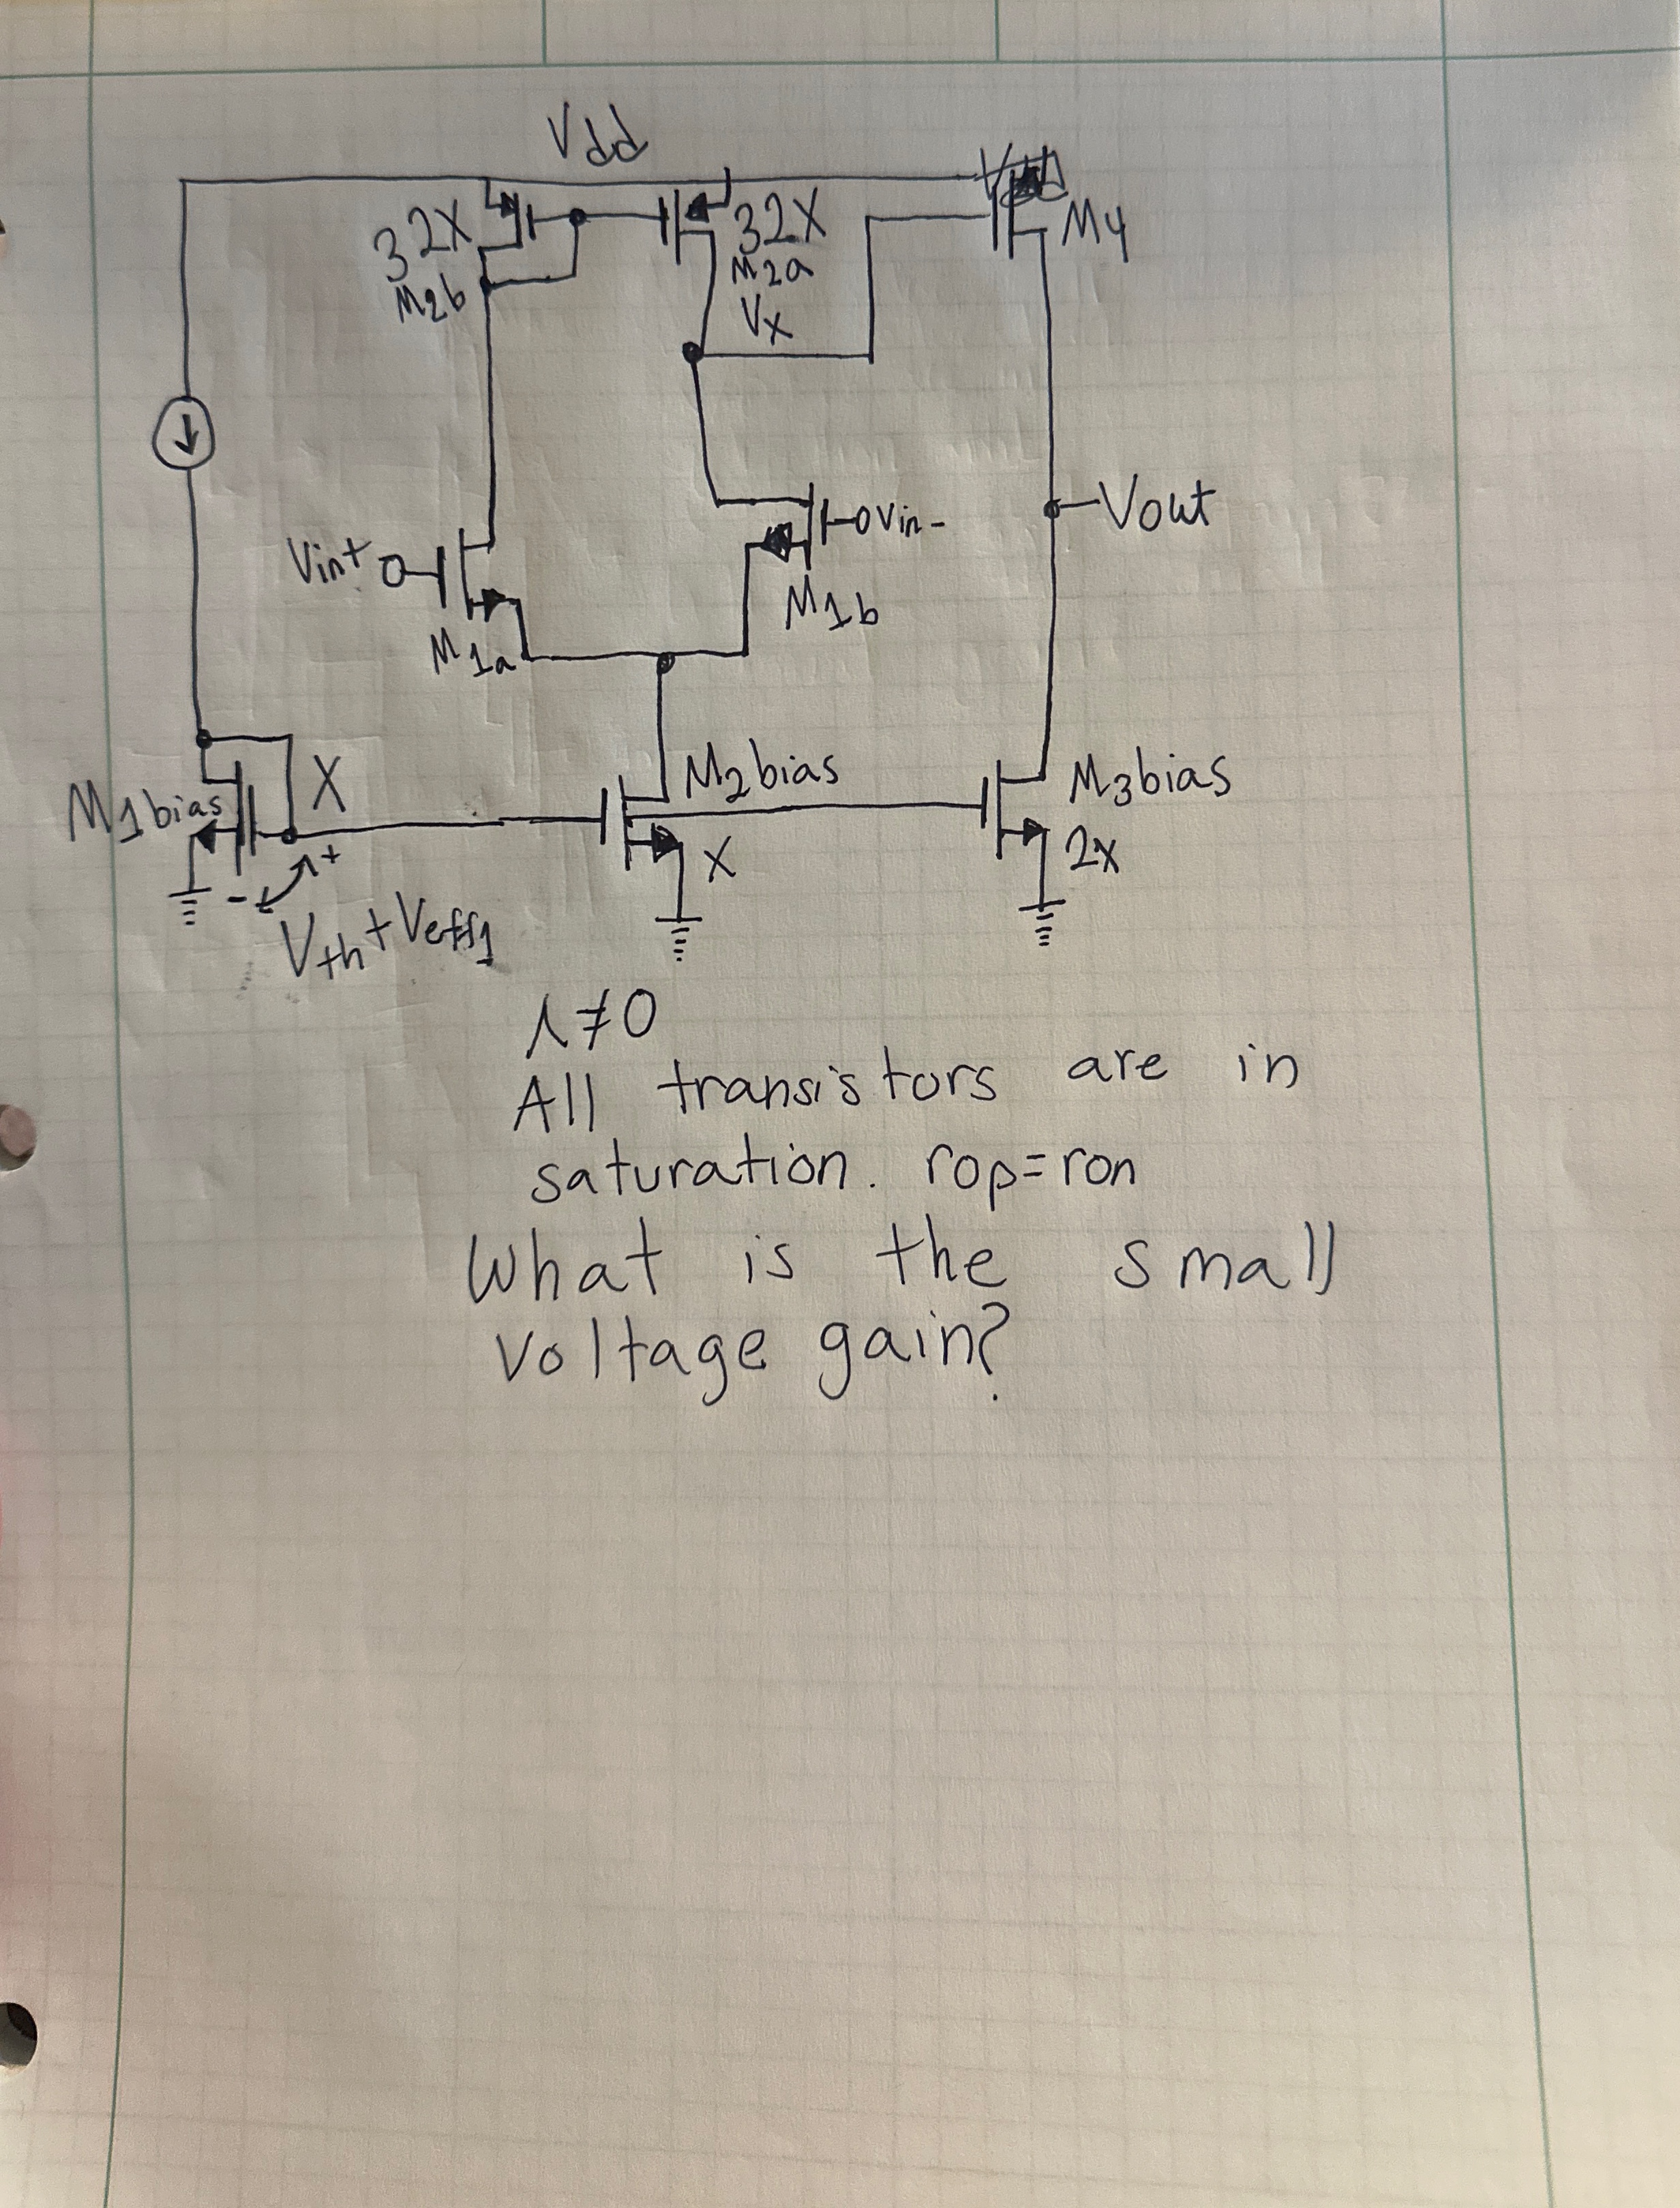 Vdd
32X
M2b
32X
M2a
Vx
M4
Vin+
M1a
Vin-
M1b
Vout
M1bias
X
M2bias
X
M3bias
2x
+
-
Vth+Veff1
λ≠0
All transistors are in
saturation. rop=ron
What is the small
voltage gain?